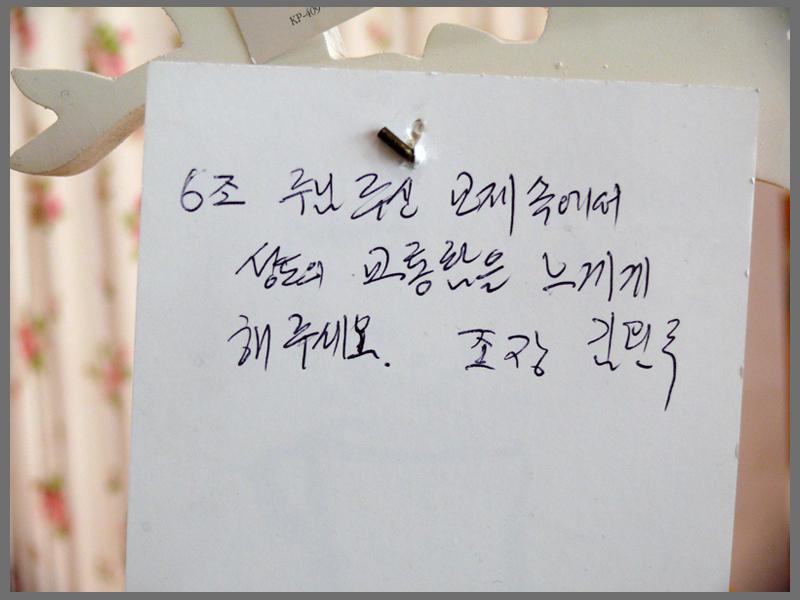 KP-409
6조 주님 주신 교제 속에서
성도의 교통함을 느끼게
해 주세요. 조장